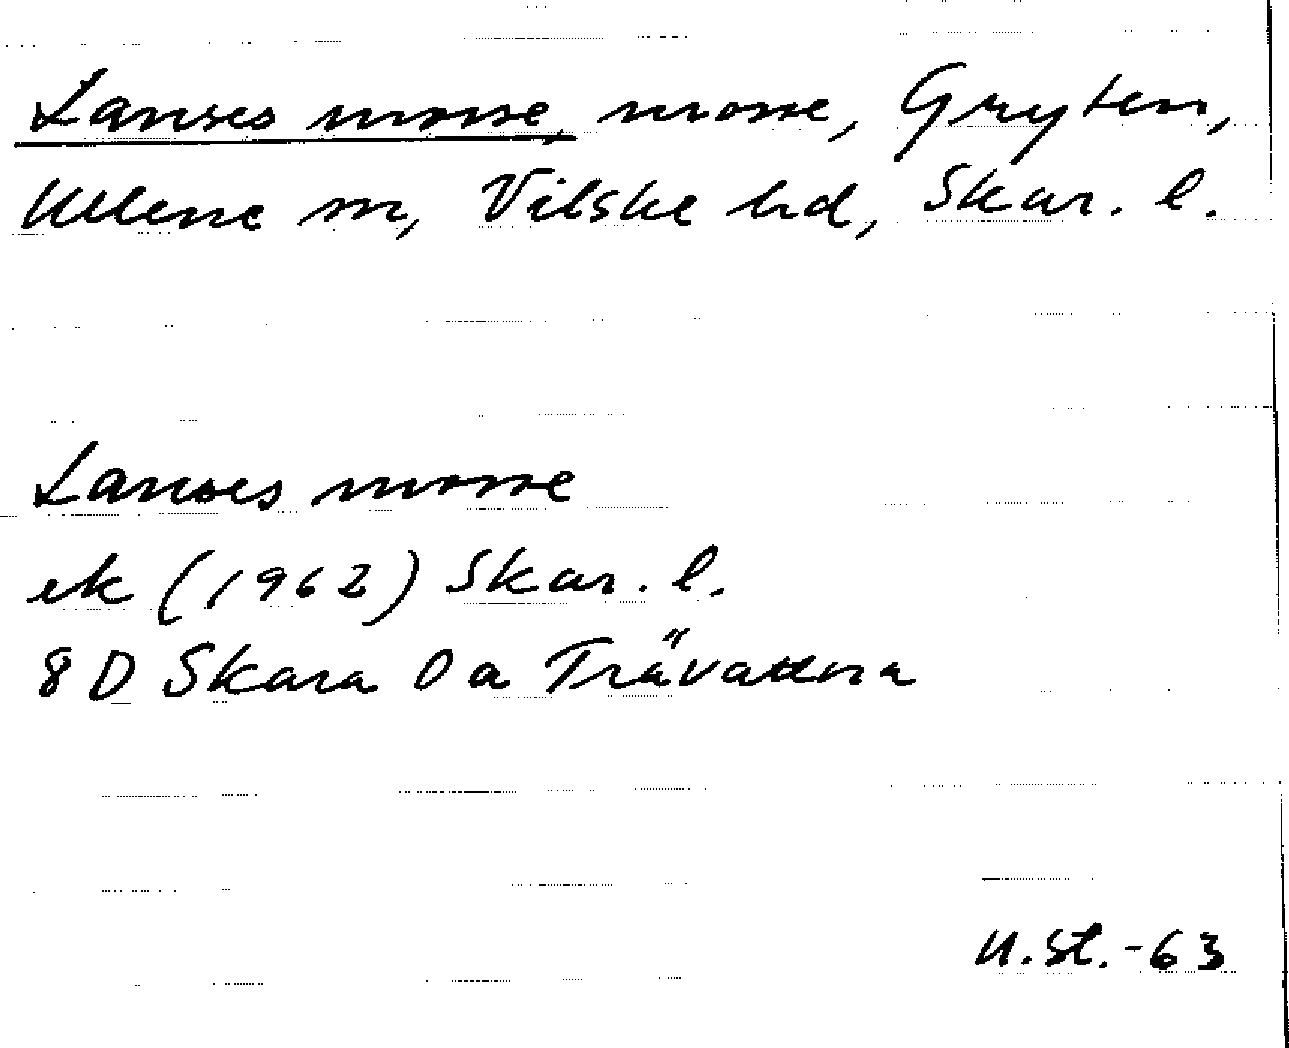 Lanses mosse, mosse, Gryten,
Ullene sn, Vilske hd, Skar. l.
Lanses mosse
ek (1962) Skar. l.
8 D Skara 0 a Trävattna
U.St.-63